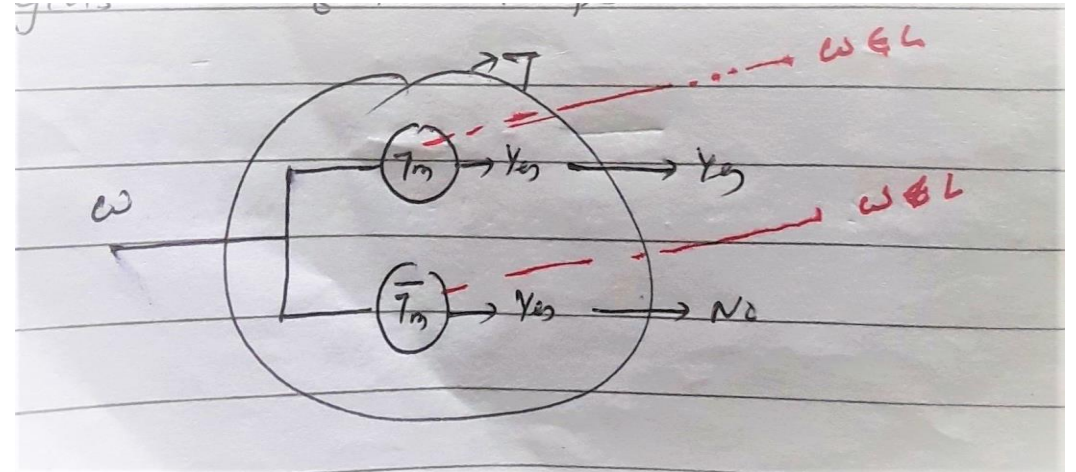 T
w ∈ L
Tm → Yes → Yes
w
w ∉ L
T̅m → Yes → No